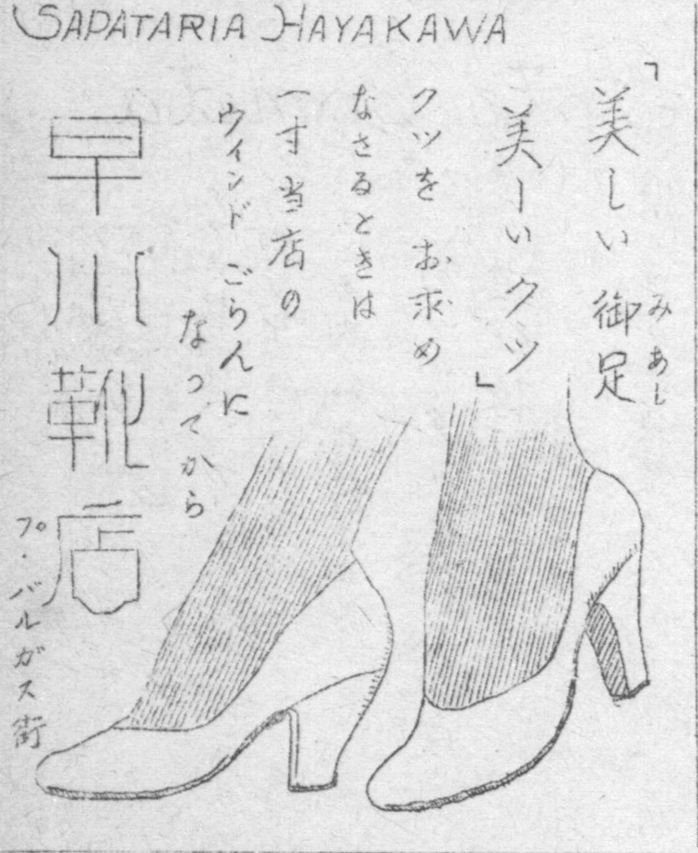 SAPATARIA HAYAKAWA
「美しい御足
みあし
美しいクツ」
クツをお求め
なさるときは
一寸当店の
ウィンドごらんに
なってから
早川靴店
プ・バルガス街